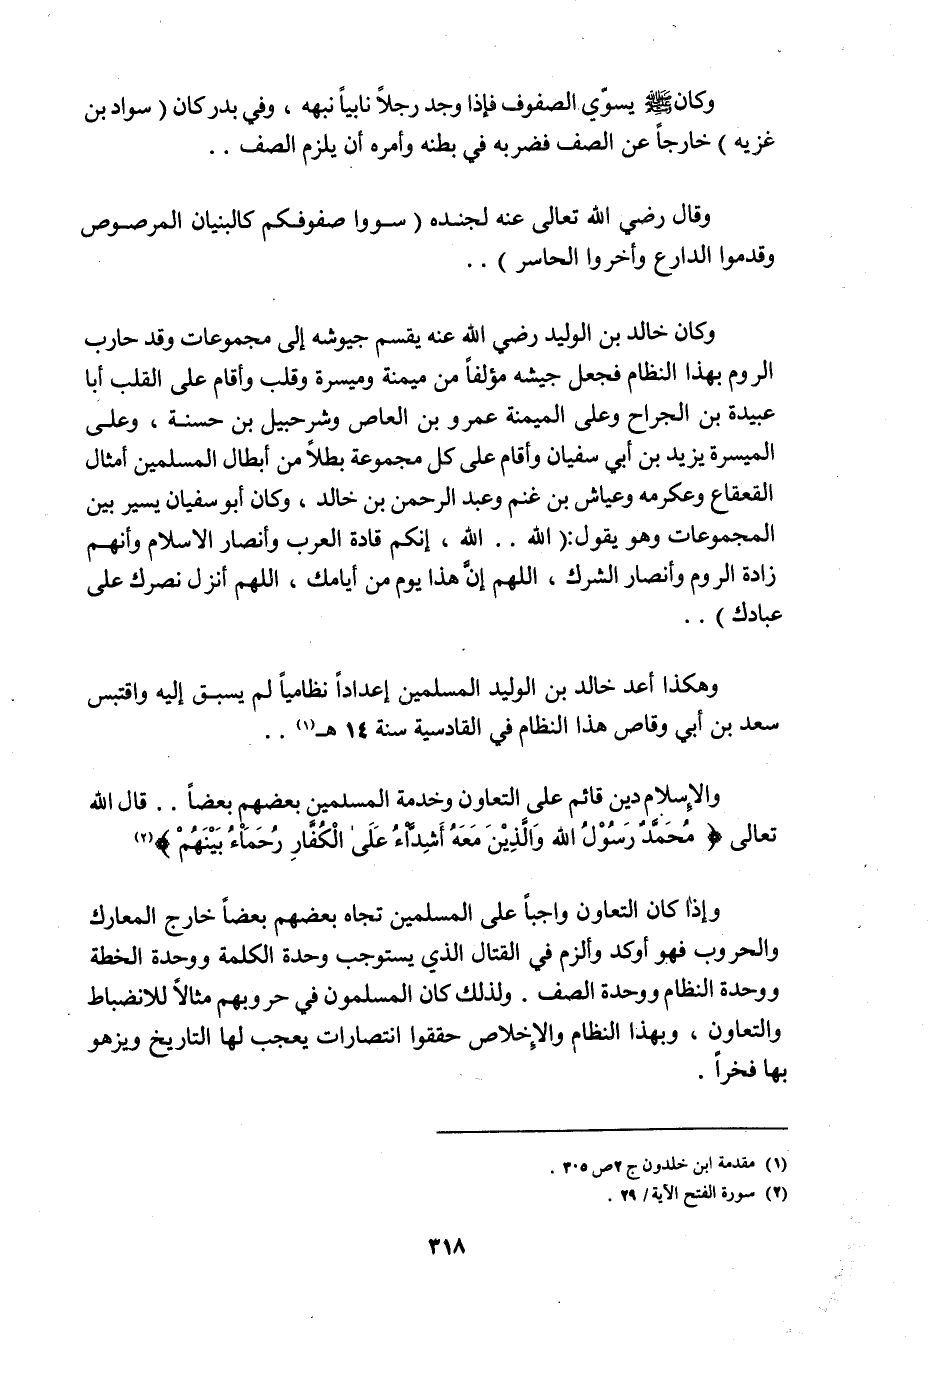 وكان ﷺ يسوّي الصفوف فإذا وجد رجلاً نابياً نبهه ، وفي بدر كان ( سواد بن
غزيه ) خارجاً عن الصف فضربه في بطنه وأمره أن يلزم الصف . .
وقال رضي الله تعالى عنه لجنده ( سـووا صفوفـكم كالبنيان المرصـوص
وقدموا الدارع وأخروا الحاسر ) . .
وكان خالد بن الوليد رضي الله عنه يقسم جيوشه إلى مجموعات وقد حارب
الروم بهذا النظام فجعل جيشه مؤلفاً من ميمنة وميسرة وقلب وأقام على القلب أبا
عبيدة بن الجراح وعلى الميمنة عمرو بن العاص وشرحبيل بن حسنة ، وعلـى
الميسرة يزيد بن أبي سفيان وأقام على كل مجموعة بطلاً من أبطال المسلمين أمثال
القعقاع وعكرمه وعياش بن غنم وعبد الرحمن بن خالد ، وكان أبو سفيان يسير بين
المجموعات وهو يقول:( الله . . الله ، إنكم قادة العرب وأنصار الاسلام وأنهـم
زادة الروم وأنصار الشرك ، اللهم إنَّ هذا يوم من أيامك ، اللهم أنزل نصرك على
عبادك ) . .
وهكذا أعد خالد بن الوليد المسلمين إعداداً نظامياً لم يسبـق إليه واقتبس
سعد بن أبي وقاص هذا النظام في القادسية سنة ١٤ هـ(١) . .
والإسلام دين قائم على التعاون وخدمة المسلمين بعضهم بعضاً . . قال الله
تعالى ﴿ مُحَمَّدٌ رَسُوْلُ الله وَالَّذِيْنَ مَعَهُ أَشِدَّاْءُ عَلَىٰ الْكُفَّارِ رُحَمَاْءُ بَيْنَهُمْ ﴾(٢)
وإذا كان التعاون واجباً على المسلمين تجاه بعضهم بعضاً خارج المعارك
والحروب فهو أوكد وألزم في القتال الذي يستوجب وحدة الكلمة ووحدة الخطة
ووحدة النظام ووحدة الصف . ولذلك كان المسلمون في حروبهم مثالاً للانضباط
والتعاون ، وبهذا النظام والإخلاص حققوا انتصارات يعجب لها التاريخ ويزهو
بها فخراً .
(١) مقدمة ابن خلدون ج ٢ص ٣٠٥ .
(٢) سورة الفتح الآية / ٢٩ .
٣١٨